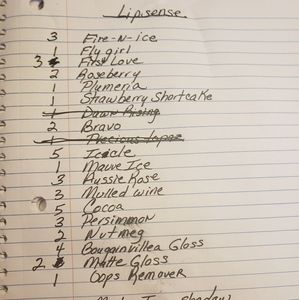 Lipsense
3 Fire-N-ice
1 Fly girl
3 First Love
2 Roseberry
1 Plumeria
1 Strawberry Shortcake
1 Dawn Rising
2 Bravo
1 Precious Topaz
5 Icicle
1 Mauve Ice
3 Aussie Rose
3 Mulled wine
5 Cocoa
3 Persimmon
2 Nutmeg
4 Bougainvillea Gloss
2 Matte Gloss
1 Oops Remover